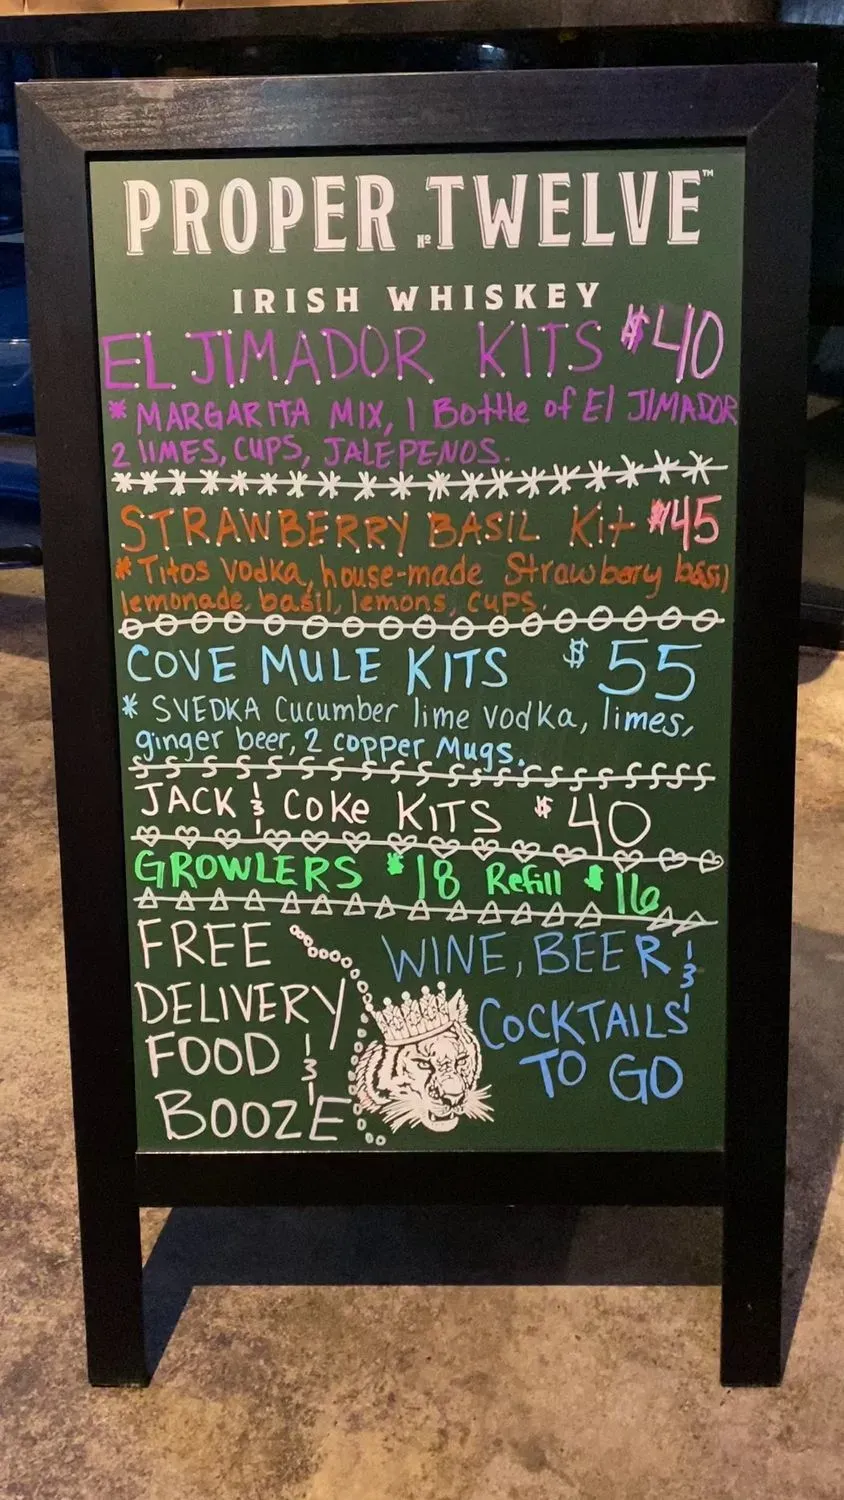 PROPER No. TWELVE™
IRISH WHISKEY
EL JIMADOR KITS $40
* MARGARITA MIX, 1 Bottle of El JIMADOR
2 lIMES, CUPS, JALEPENOS.
STRAWBERRY BASIL Kit $45
* Titos Vodka, house-made Strawbery basil
lemonade, basil, lemons, cups.
COVE MULE KITS $55
* SVEDKA Cucumber lime vodka, limes,
ginger beer, 2 copper Mugs.
JACK & Coke KITS $40
GROWLERS $18 Refill $16
FREE
DELIVERY
FOOD &
BOOZE
WINE, BEER &
COCKTAILS
TO GO